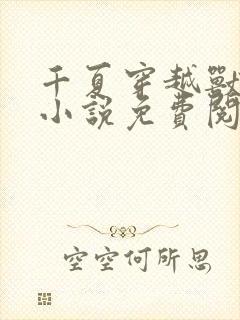 千夏穿越獸
小說免費閱
空空何所思